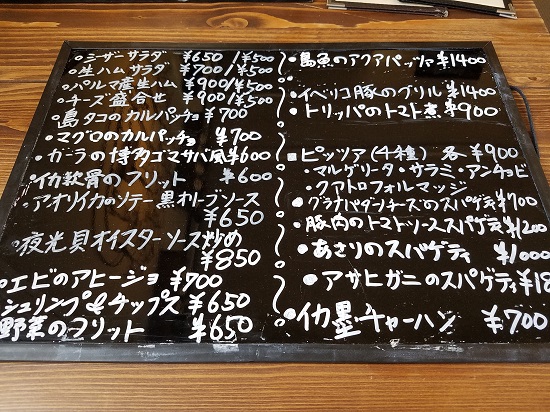 ・シーザーサラダ ¥650/¥500
・生ハムサラダ ¥700/¥500
・パルマ産生ハム ¥900/¥500
・チーズ盛合せ ¥900/¥500
・島タコのカルパッチョ ¥700
・マグロのカルパッチョ ¥700
・ガーラの博多ゴマサバ風 ¥600
・イカ軟骨のフリット ¥600
・アオリイカのソテー黒オリーブソース
¥650
・夜光貝オイスターソース炒め
¥850
・エビのアヒージョ ¥700
シュリンプ&チップス ¥650
野菜のフリット ¥650
・島魚のアクアパッツァ ¥1400
・イベリコ豚のグリル ¥1400
・トリッパのトマト煮 ¥900
■ピッツァ(4種) 各 ¥900
・マルゲリータ・サラミ・アンチョビ
・クアトロフォルマッジ
・グラナパダーノチーズのスパゲティ ¥700
・豚肉のトマトソーススパゲティ ¥1200
・あさりのスパゲティ ¥1000
・アサヒガニのスパゲティ ¥18
・イカ墨チャーハン ¥700